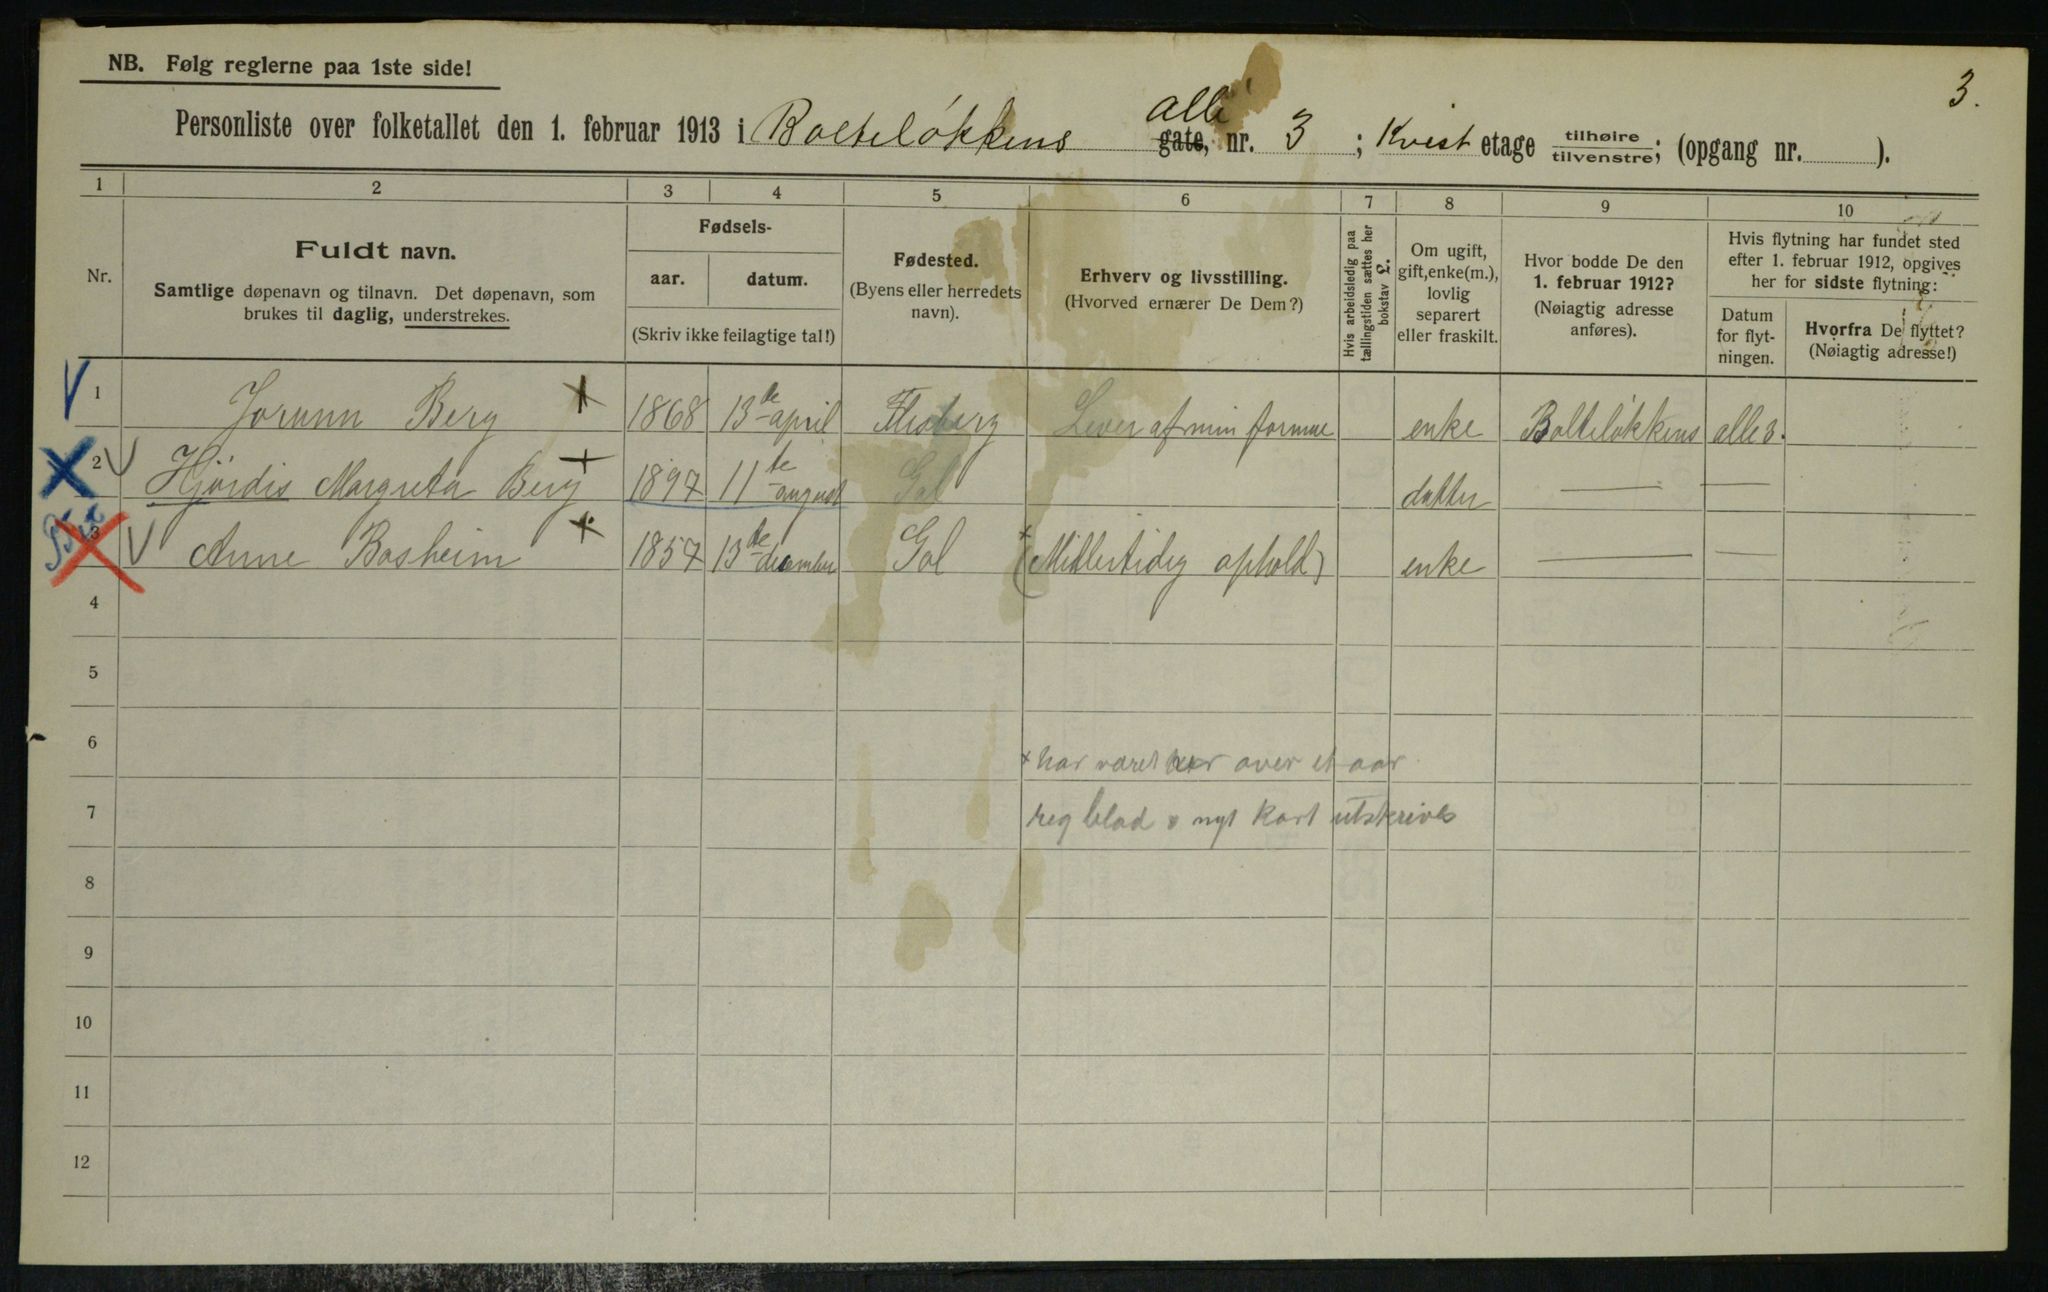 3.
NB. Følg reglerne paa 1ste side!
Personliste over folketallet den 1. februar 1913 i Bolteløkkens alle gate, nr. 3 ; Kvist etage tilhøire/tilvenstre; (opgang nr. ).
1 2 3 4 5 6 7 8 9 10
Nr.
Fuldt navn.
Samtlige døpenavn og tilnavn. Det døpenavn, som
brukes til daglig, understrekes.
Fødsels-
aar. datum.
(Skriv ikke feilagtige tal!)
Fødested.
(Byens eller herredets
navn).
Erhverv og livsstilling.
(Hvorved ernærer De Dem?)
Hvis arbeidsledig paa
tællingstiden sættes her
bokstav £.
Om ugift,
gift, enke(m.),
lovlig
separert
eller fraskilt.
Hvor bodde De den
1. februar 1912?
(Nøiagtig adresse
anføres).
Hvis flytning har fundet sted
efter 1. februar 1912, opgives
her for sidste flytning:
Datum
for flyt-
ningen.
Hvorfra De flyttet?
(Nøiagtig adresse!)
1 Jorunn Berg 1868 13de april Flesberg Lever af min formue enke Bolteløkkens alle 3.
2 Hjørdis Margreta Berg 1897 11te august Gol datter — —
3 Anne Basheim 1857 13de december Gol x (Midlertidig ophold) enke — —
4
5
6 x har været her over et aar
7 reg blad & nyt kort utskrives
8
9
10
11
12